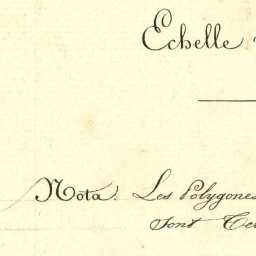 Echelle
Nota. Les Polygones
sont